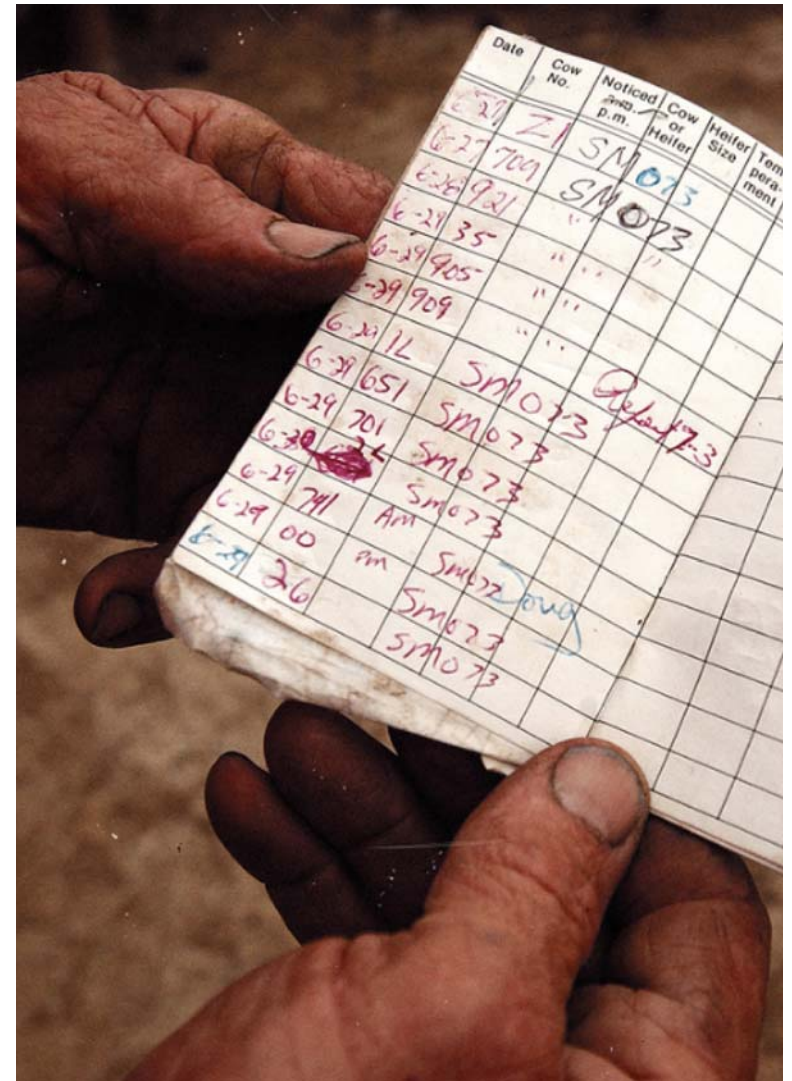 Date Cow No. Noticed a.m. p.m. Cow or Heifer Heifer Size Tem pera- ment
6-27 Z1 SM073
6-27 709 SM073
6-28 921 " "
6-29 35 " "
6-29 905 " "
6-29 909 " "
6-29 1L SM073
6-29 651 SM073 7-3
6-29 701 SM073
6-30 SM073
6-29 741 Am SM073 Doug
6-29 00 pm SM073
6-29 26 SM073